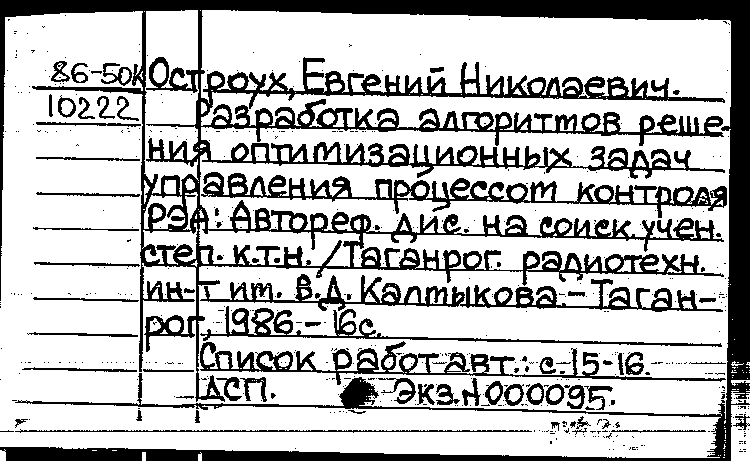 86-50к Остроух, Евгений Николаевич.
10222 Разработка алгоритмов реше-
ния оптимизационных задач
управления процессом контроля
РЭА: Автореф. дис. на соиск. учен.
степ. к.т.н. / Таганрог. радиотехн.
ин-т им. В.Д. Калмыкова. - Таган-
рог, 1986. - 16с.
Список работ авт.: с. 15-16.
ДСП. Экз. N 000095.